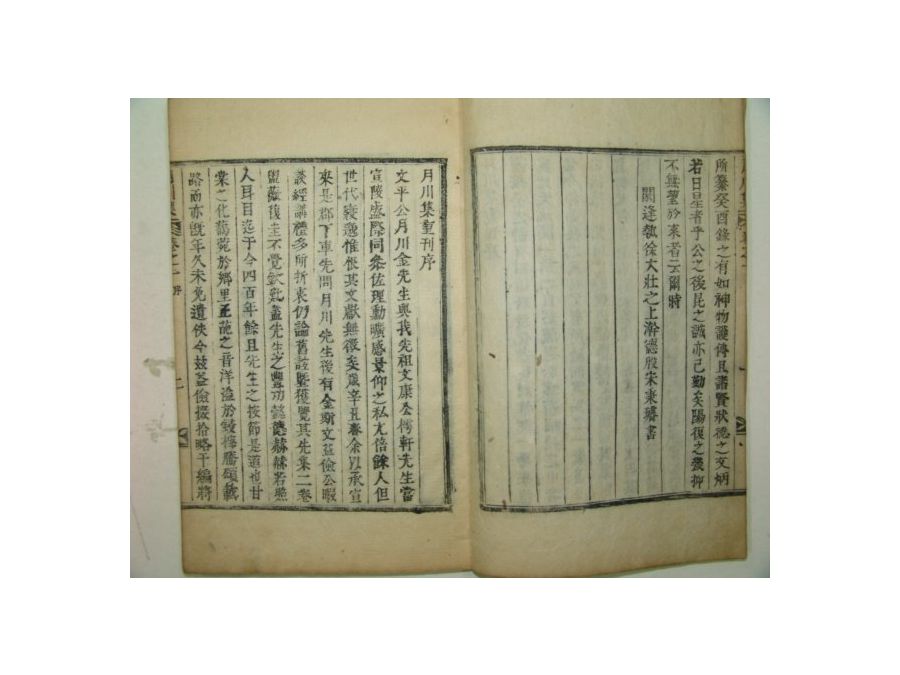 所纂癸酉錄之有如神物護傳且諸賢狀德之文炳
若日星者乎公之後昆之誠亦已勤矣陽復之幾抑
不無望於來者云爾時
閼逢執徐大壯之上澣德殷宋來
書
月川集重刊序
文平公月川金先生與我先祖文康公樗軒先生當
宣陵盛際同參佐理勳曠感景仰之私尤倍餘人但
世代寖邈惟恨其文獻無徵矣歲辛丑春余以承宣
來是郡下車先問月川先生後有金斯文益儉公暇
談經講禮多所折衷仍論舊誼暨獲覽其先集二卷
盥薇復圭不覺欽歎蓋先生之豐功懿德赫赫若照
人耳目迄于今四百年餘且先生之按節是道也甘
棠之化藹菀於鄕里正
之音洋溢於
騰頌
路而亦旣年久未免遺佚今玆益儉掇拾略干編將
卷之一
序
二